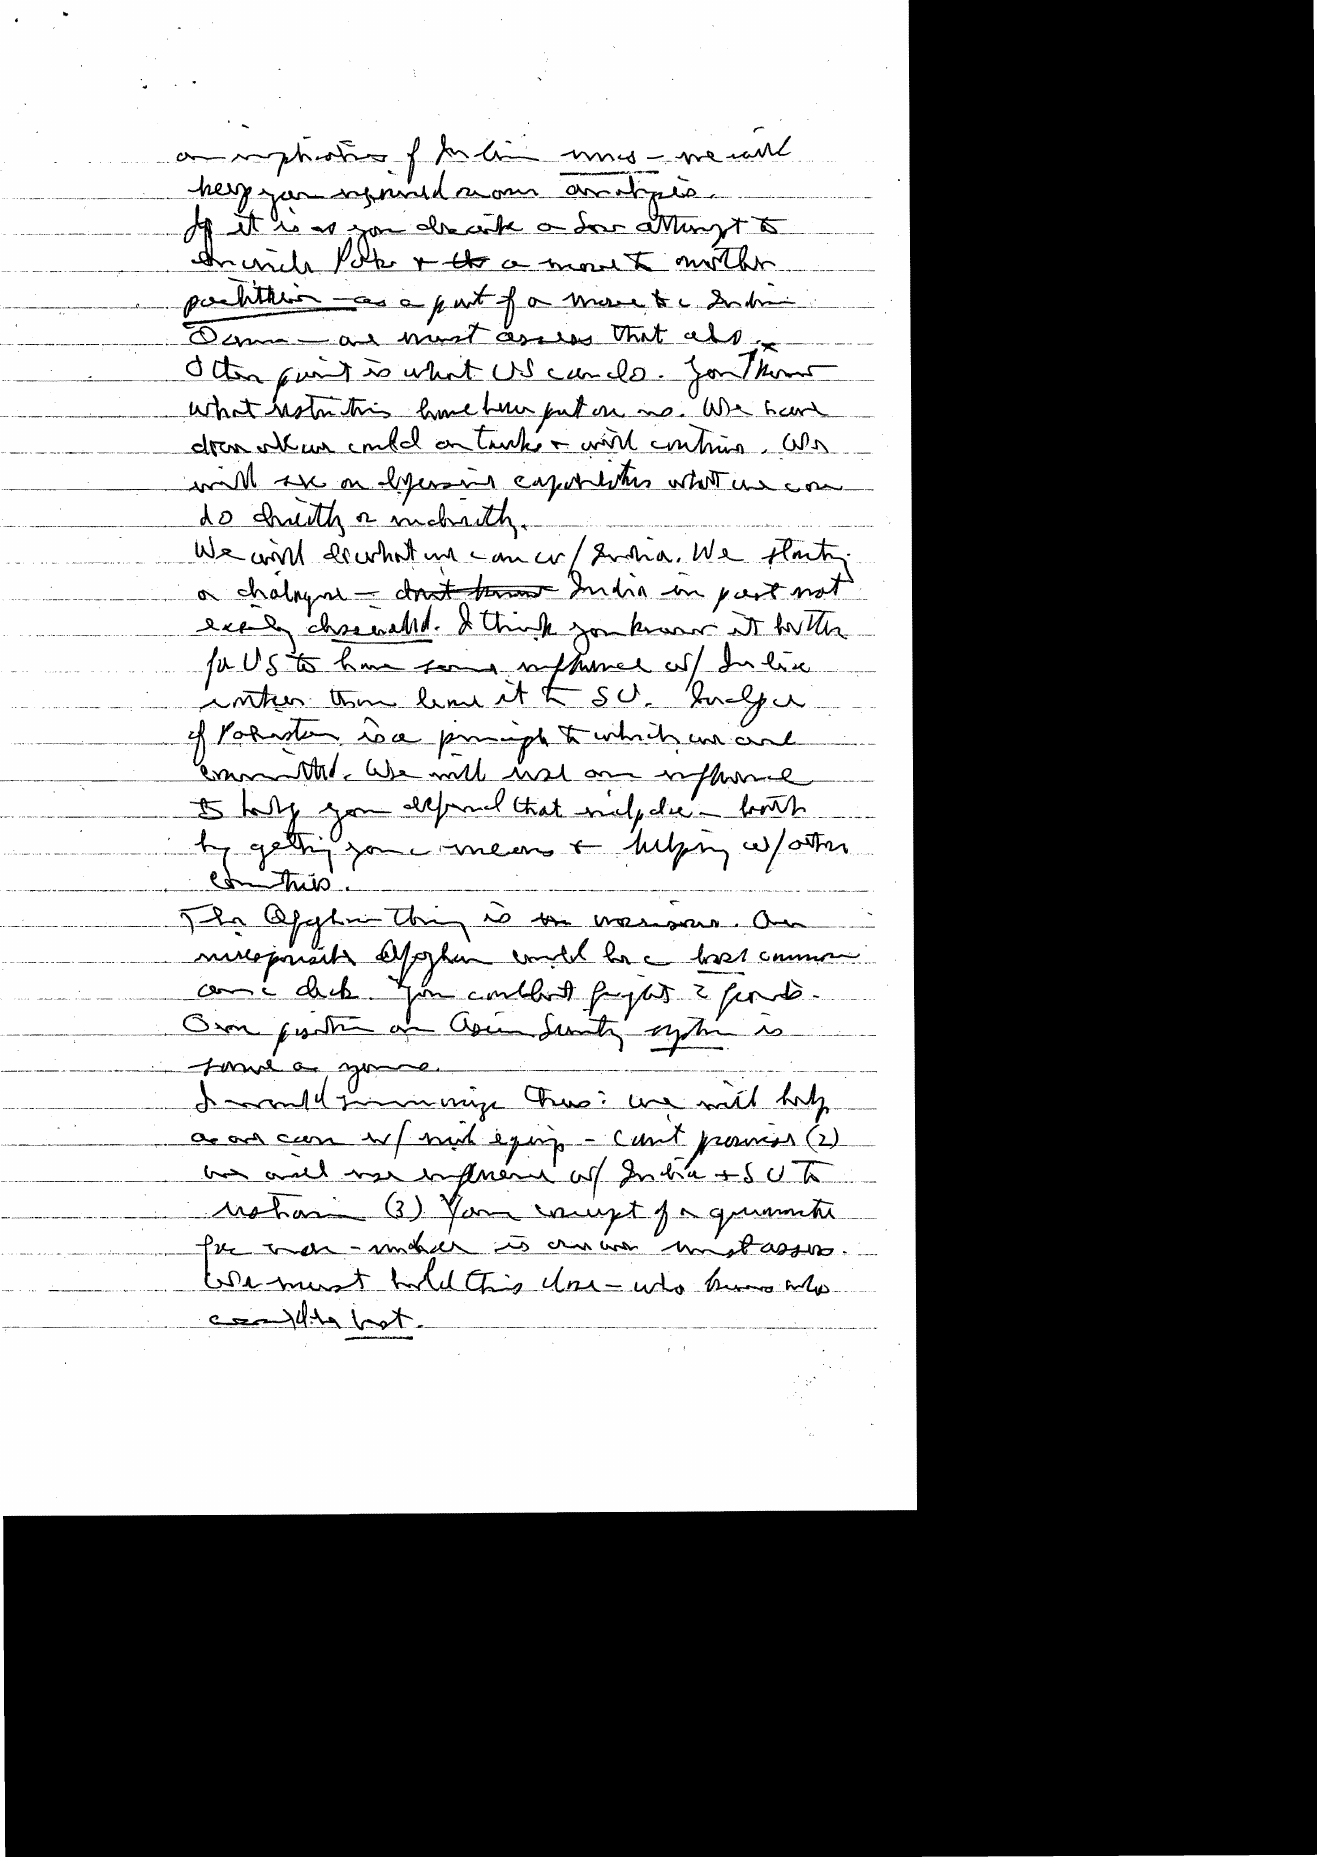 on implications of Indian moves – we will
keep you informed on our analysis.
If it is as you describe a Sov attempt to
encircle Paks & the a move to another
partition – as a part of a move to Indian
Ocean – we must assess that also.
Other point is what US can do. You know
what restrictions have been put on us. We have
done all we could on tanks & will continue. We
will see on defensive capabilities what we can
do directly or indirectly.
We will do what we can w/ India. We starting
a dialogue – don't know India in past not
easily dissuaded. I think you know it better
for US to have some influence w/ India
rather than leave it to SU.
of Pakistan is a principle to which we are
committed. We will use our influence
to help you defend that – both
by getting you means & helping w/ other
countries.
The Afghan thing is worrisome. An
irresponsible Afghan could
You couldn't fight 2 fronts.
Our position on Asian Security system is
same as yours.
I would summarize thus: we will help
as we can w/ mil equip – can't promise (2)
we will use influence w/ India + SU to
restrain (3) Your concept of a guarantee
for non-nuclear is one we must assess.
We must hold this close – who knows who
could be hot.